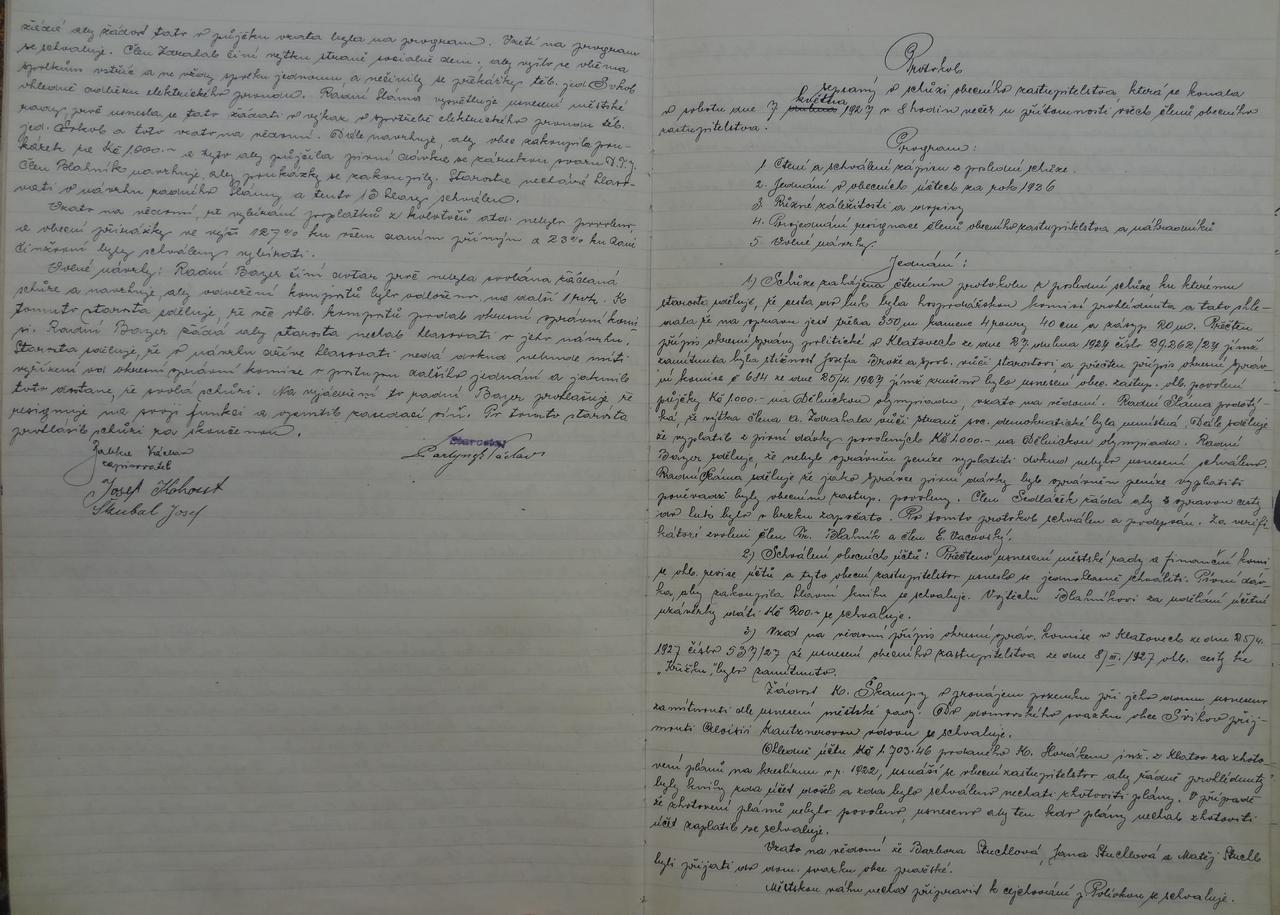 žádné aby žádost tato o půjčku vzata byla na program. Vzetí na program
se schvaluje. Člen Zdrahal činí výtku straně sociálně dem. aby vyšlo se oběma
spolkům vstříc a ne vždy spolku jednomu, a nečinily se překážky těl. jed. Sokol
ohledně odběru elektrického proudu. Radní Sláma vysvětluje usnesení městské
rady, prvé usnesla se tato žádati o výkaz o spotřebě elektrického proudu těl.
jed. Sokol a toto vzato na vědomí. Dále navrhuje, aby obec zakoupila pou-
kázek za Kč 1.000.- a
Člen Blahník navrhuje, aby poukázky se zakoupily. Starosta nechává hlaso-
vati o návrhu radního Slámy a tento 13 hlasy schválen.
Vzato na vědomí, že vybírání poplatků z kolotočů atd. nebylo povoleno
a obecní přirážky ve výši 127% ku všem daním přímým a 23% ku dani
činžovní byly schváleny vybírati.
Volné návrhy: Radní Bayer činí dotaz prvé nebyla svolána žádaná
schůze a navrhuje, aby odvežení kompostů bylo odloženo na další 1 rok. K
tomuto starosta sděluje, že věc ohl. kompostů podal okresní správní komi-
si. Radní Bayer žádá aby starosta nechal hlasovati o jeho návrhu.
Starosta sděluje, že o návrhu dříve hlasovati nedá dokud nebude míti
vyřízení od okresní správní komise v postupu dalšího jednání a jakmile
toto dostane, že svolá schůzi. Na vyjádření to radní Bayer prohlašuje že
resignuje na svoji funkci a opustil zasedací síň. Po tomto starosta
prohlásil schůzi za skončenou.
Václav
zapisovatel
Starosta
Václav
Josef Kohout
Škubal Josef
Protokol
sepsaný o schůzi obecního zastupitelstva která se konala
v sobotu dne 7 května 1927 v 8 hodin večer u přítomnosti všech členů obecního
zastupitelstva.
Program:
1 Čtení a schválení zápisu z poslední schůze.
2. Jednání o obecních účtech za rok 1926
3. Různé záležitosti a dopisy
4. Projednání resignace členů obecního zastupitelstva a náhradníků
5. Volné návrhy.
Jednání:
1) Schůze zahájena čtením protokolu z poslední schůze ku kterému
starosta sděluje, že cesta do luk byla hospodářskou komisí prohlédnuta a tato shle-
dala že na opravu jest třeba 350 m kamene 4 roury 40 cm a zásyp 20 m3. Přečten
přípis okresní správy politické v Klatovech ze dne 27. dubna 1927 číslo 29.262/27 jímž
zamítnuta byla stížnost Josefa Brože a spol. vůči starostovi, a přečten přípis okresní správ-
ní komise č 684 ze dne 25/4. 1927 jímž zrušeno bylo usnesení obec. zastup. ohl. povolení
půjčky Kč 1.000.- na Dělnickou olympiadu, vzato na vědomí. Radní Sláma prodotý-
ká, že výtka člena A. Zdrahala vůči straně soc. demokratické byla neměstná. Dále sděluje
že vyplatil z pivní dávky povolených Kč 1.000.- na Dělnickou olympiadu. Radní
Bayer sděluje, že nebyl oprávněn peníze vyplatiti dokud nebylo usnesení schváleno.
Radní Sláma sděluje že jako správce pivní dávky byl oprávněn peníze vyplatiti
poněvadž byly obecním zastup. povoleny. Člen Sedláček žádá aby s opravou cesty
do luk bylo v brzku započato. Po tomto protokol schválen a podepsán. Za verifi-
kátory zvoleni člen Fr. Blahník a člen E. Vacovský.
2) Schválení obecních účtů: Přečteno usnesení městské rady a finanční komi-
se ohl. revise účtů a tyto obecní zastupitelstvo usneslo se jednohlasně schváliti. Pivní dáv-
ka, aby zakoupila hlavní knihu se schvaluje. Vojtěchu Blahníkovi za udělání účetní
uzávěrky dáti Kč 200.- se schvaluje.
3) Vzat na vědomí přípis okresní správ. komise v Klatovech ze dne 25/4.
1927 číslo 537/27 že usnesení obecního zastupitelstva ze dne 8/III. 1927 ohl. cesty ke
„Křížku" bylo zamítnuto.
Žádost K. Škampy o pronájem pozemku při jeho domu usneseno
zamítnouti dle usnesení městské rady. Do domovského svazku obce Švihov přij-
mouti Aloisii Kautznerovou vdovou se schvaluje.
Ohledně účtu Kč 1.703.46 podaného K. Horákem inž. z Klatov za zhoto-
vení plánů na kreslírnu v r. 1922, usnáší se obecní zastupitelstvo aby řádně prohlédnuty
byly knihy zda účet došel a zda bylo schváleno nechati zhotoviti plány. V případě
že zhotovení plánů nebylo povoleno, usneseno aby ten kdo plány nechal zhotoviti
účet zaplatil se schvaluje.
Vzato na vědomí že Barbora Stuchlová, Jana Stuchlová a Matěj Stuchl
byli přijati do dom. svazku obce pražské.
Městskou váhu nechat připravit k cejchování p. Polívkou se schvaluje.